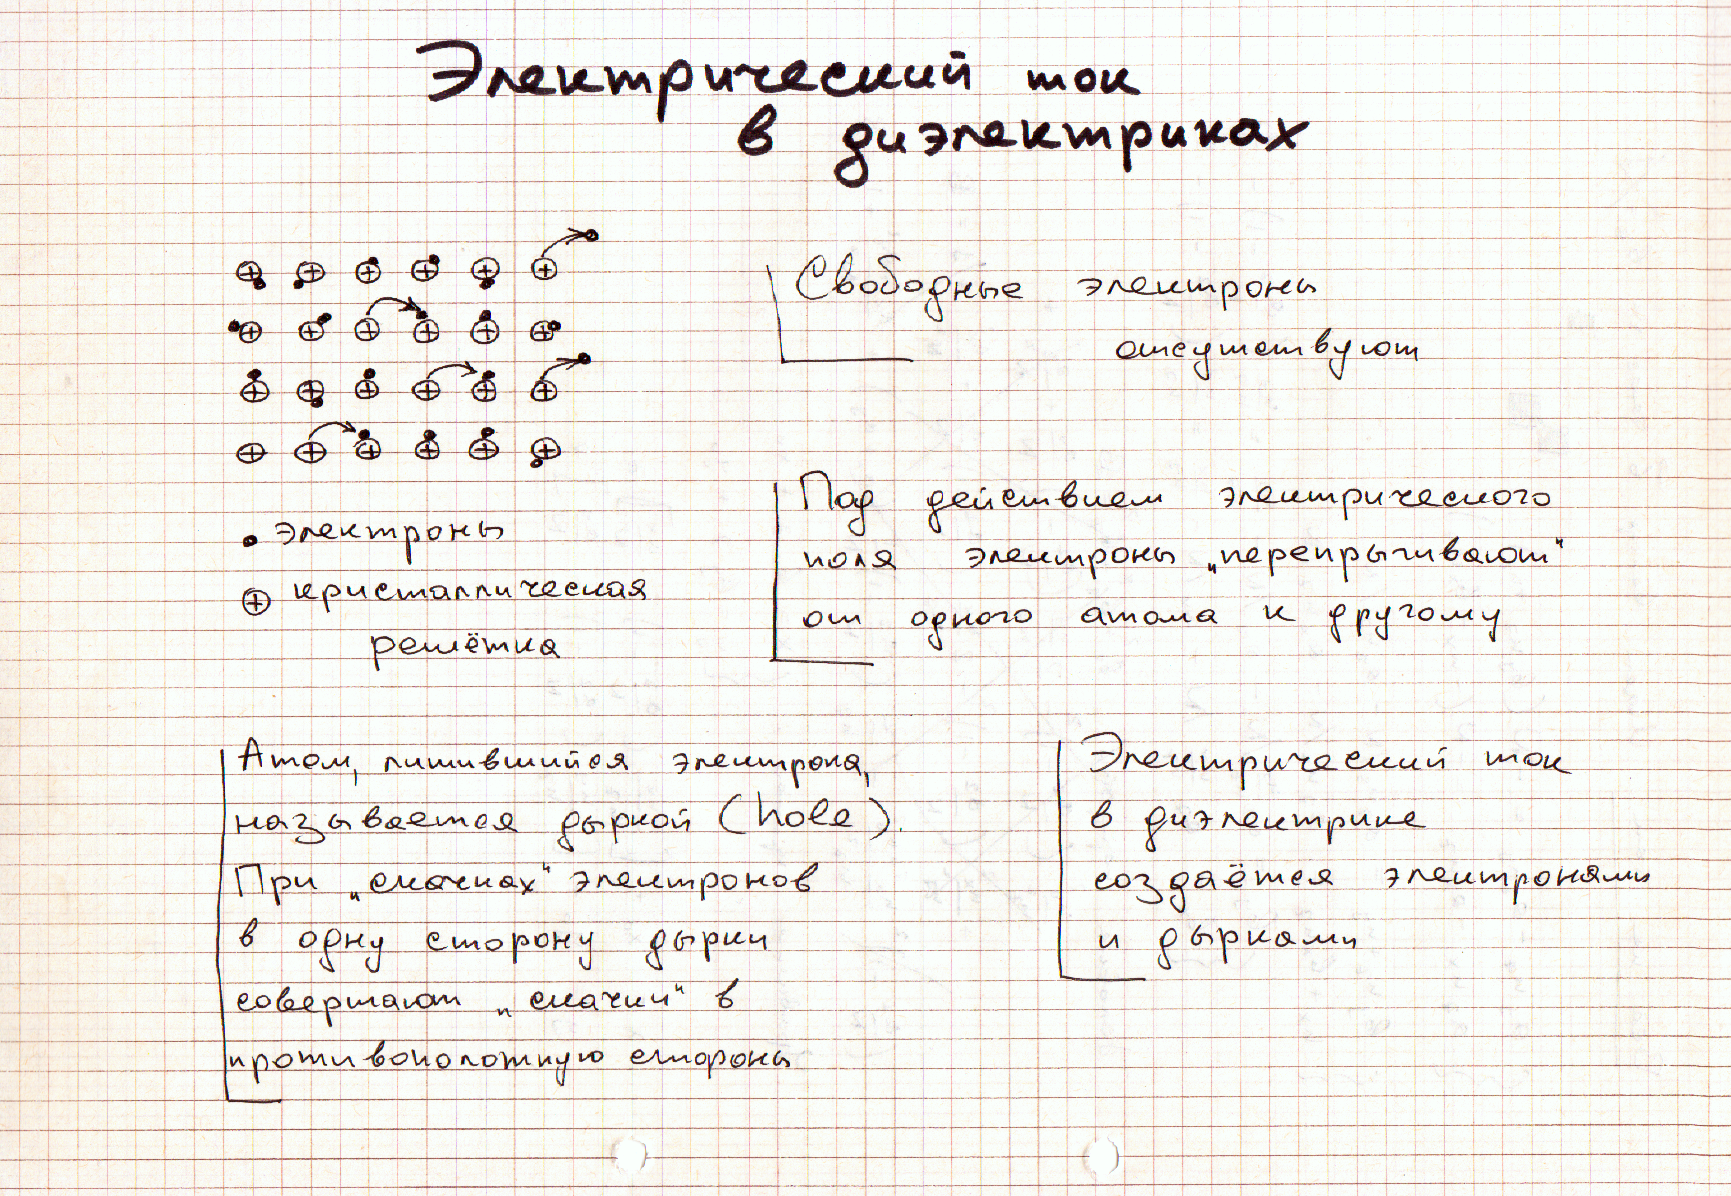 Электрический ток
в диэлектриках
Свободные электроны
отсутствуют
• электроны
⊕ кристаллическая
решётка
Под действием электрического
поля электроны „перепрыгивают“
от одного атома к другому
Атом, лишившийся электрона,
называется дыркой (hole).
При „скачках“ электронов
в одну сторону дырки
совершают „скачки“ в
противоположную стороны
Электрический ток
в диэлектрике
создаётся электронами
и дырками